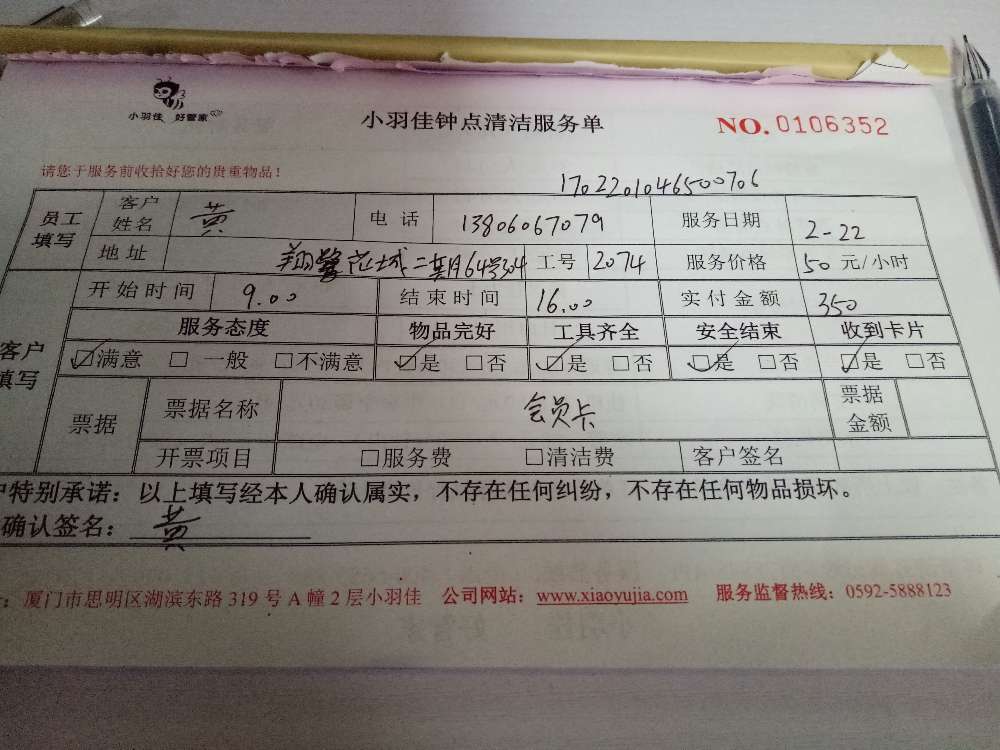 小羽佳 好管家
小羽佳钟点清洁服务单
NO. 0106352
请您于服务前收拾好您的贵重物品!
1702201046500706
员工填写 客户姓名 黄 电话 13806067079 服务日期 2-22
地址 翔鹭花城二期64号304 工号 2074 服务价格 50 元/小时
客户填写 开始时间 9.00 结束时间 16.00 实付金额 350
服务态度 物品完好 工具齐全 安全结束 收到卡片
☑满意 □一般 □不满意 ☑是 □否 ☑是 □否 ☑是 □否 ☑是 □否
票据 票据名称 会员卡 票据金额
开票项目 □服务费 □清洁费 客户签名
户特别承诺：以上填写经本人确认属实，不存在任何纠纷，不存在任何物品损坏。
确认签名： 黄
：厦门市思明区湖滨东路 319 号 A 幢 2 层小羽佳 公司网站：www.xiaoyujia.com 服务监督热线：0592-5888123